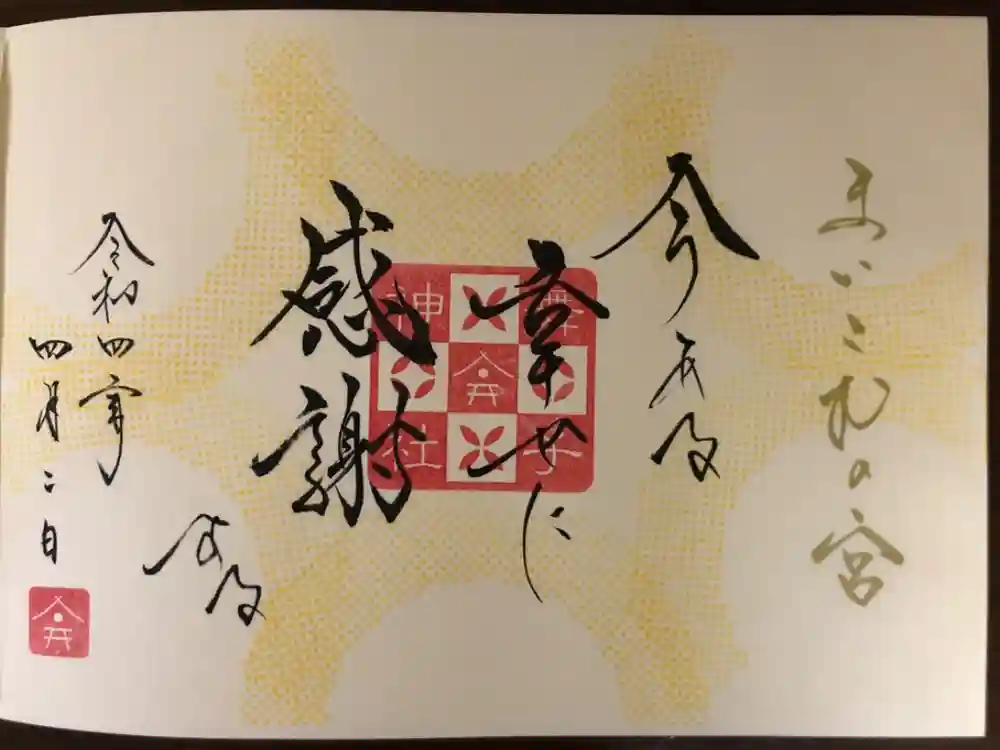 まいこれの宮
今ある
幸せに
感謝
する
令和四年
四月二日
摩子神社